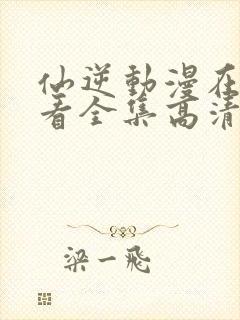 仙逆動漫在
看全集高清
梁一飛